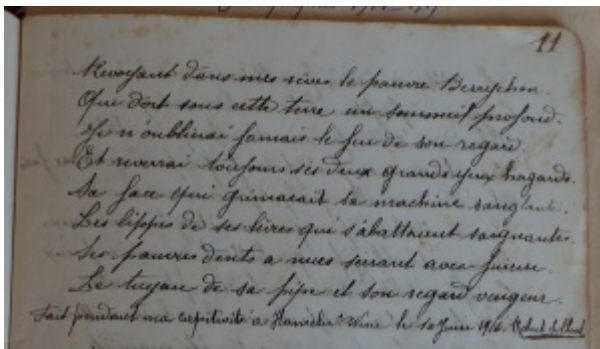 11
Revoyant dans mes rêves le pauvre Berrychon.
Qui dort sous cette terre un sommeil profond.
Je n'oublierai jamais le feu de son regard
Et reverrai toujours ses deux grands yeux hagards.
Sa face qui grimaçait sa machine sanglante.
Les lippes de ses lèvres qui s'abattaient saignantes.
Ses pauvres dents a nues serrant avec fureur
Le tuyau de sa pipe et son regard vengeur.
Fait pendant ma captivité a Hameln le 10 Juin 1916